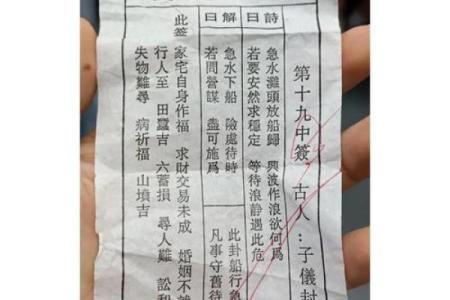 第十九中簽 古人:子儀封
詩曰
急水灘頭放船歸 興波作浪欲何為
若要安然求穩定 等待浪静過此危
解曰
急水下船 險處待時
若問營謀 盡可施爲
此卦船行急
凡事守舊待
此簽
家宅自身作福 求財交易未成 婚姻不
行人至 田蠶吉 六蓄損 尋人難 訟和
失物難尋 病祈福 山墳吉